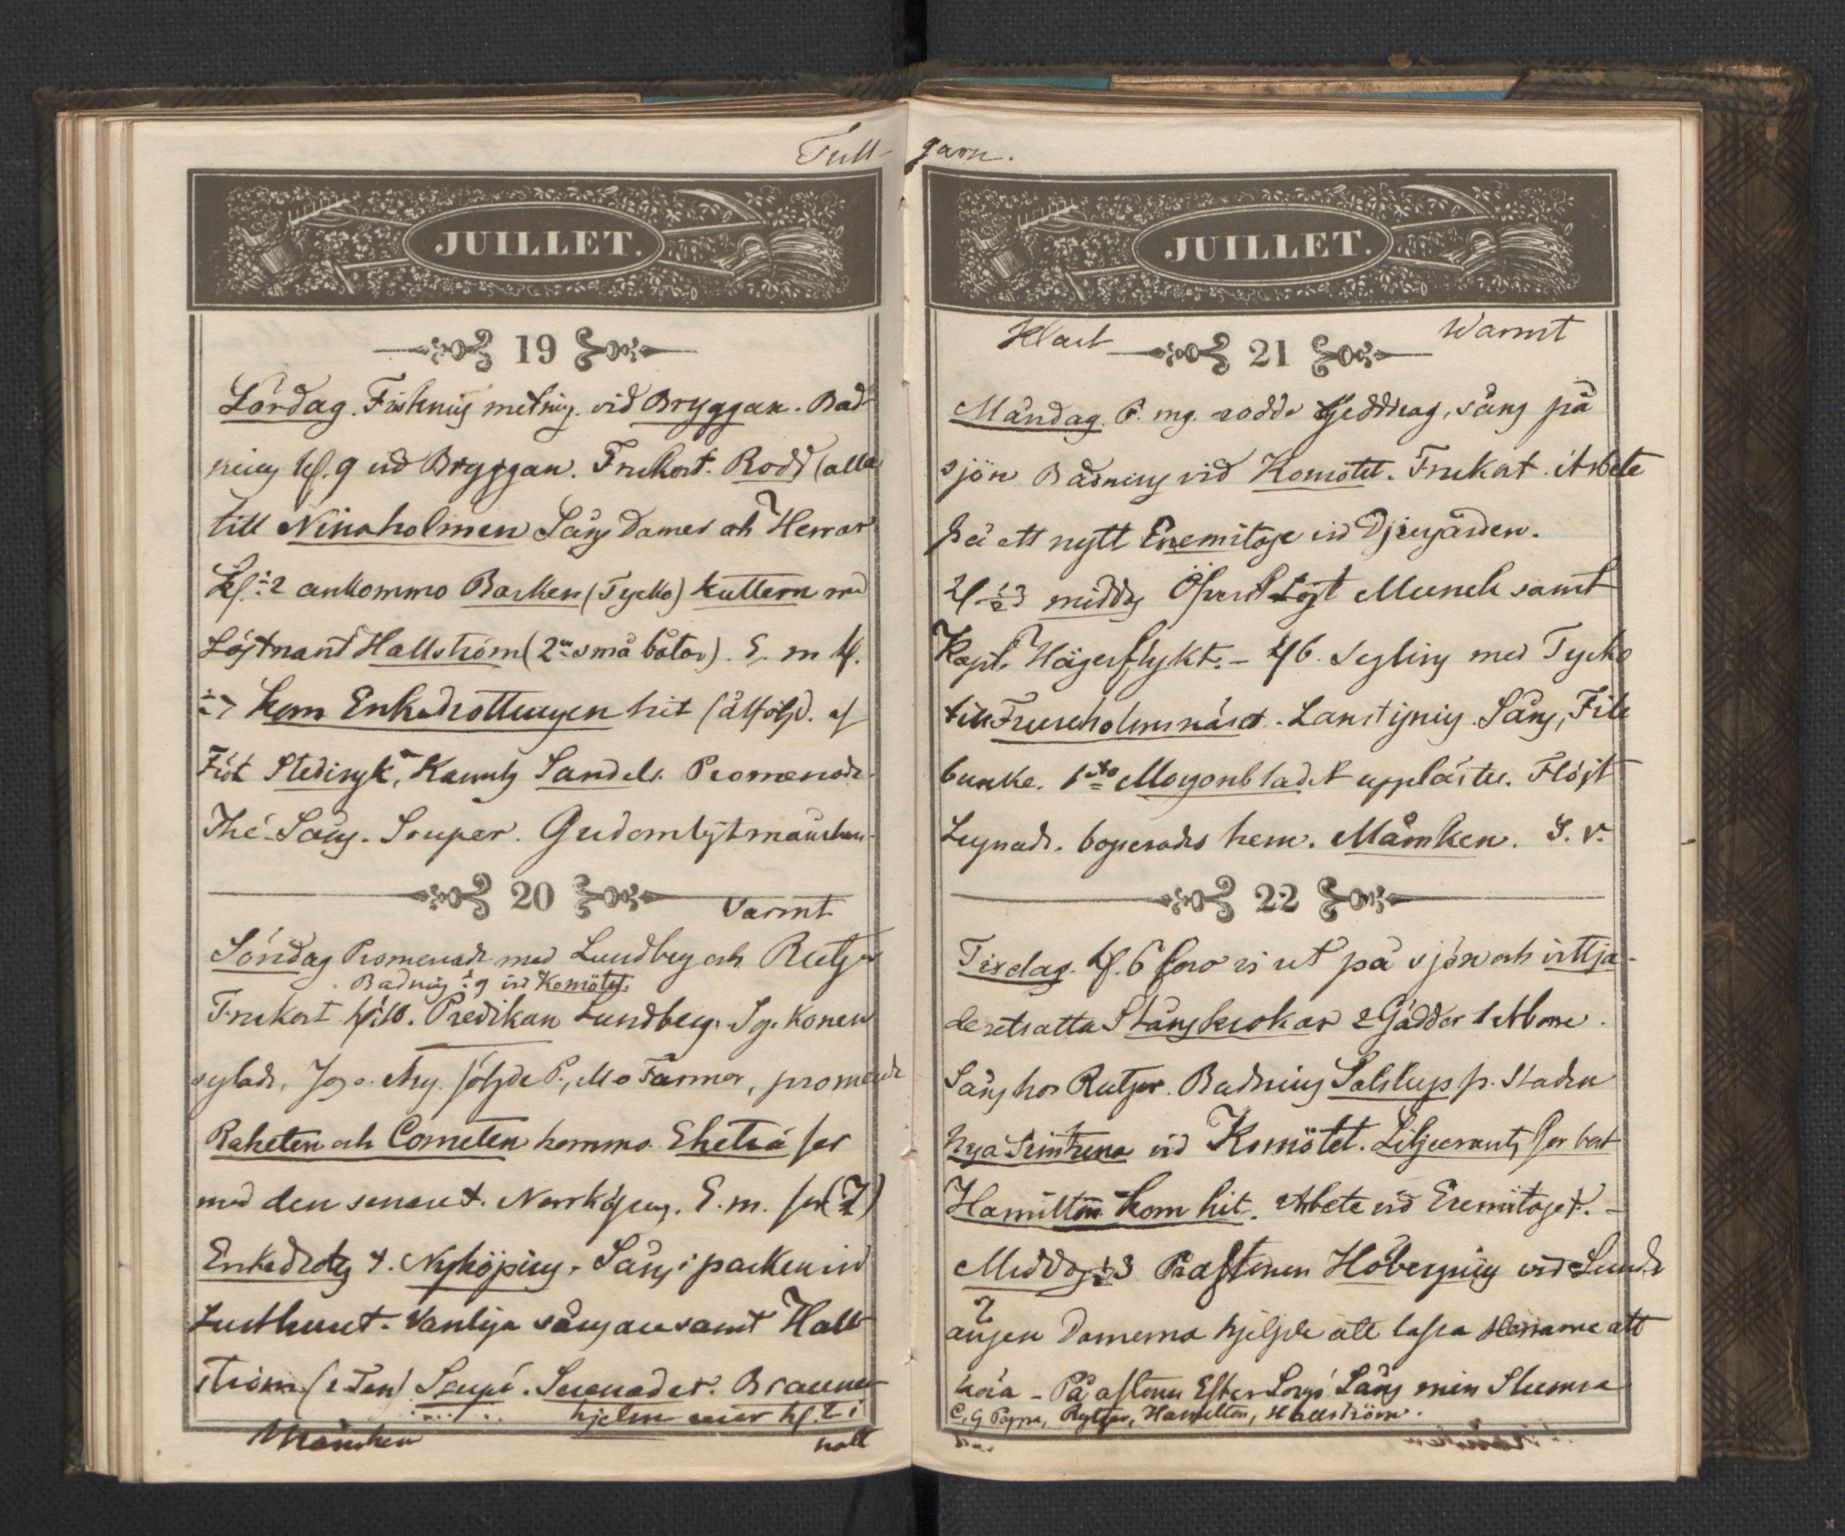 Full- garn.
JUILLET.
19
Lördag. Fiskning metning. vid Bryggan. Bad-
ning kl. 9 vid Bryggan. Frukost. Rodd (alla
till Ninaholmen Sång Damer och Herrar
Kl. ½2 ankommo Barken (Tycko) kuttern med
Löjtnant Hallström (2ne små båtar). E. m kl.
½7 kom Enkedrottningen hit (åtföljd. af
Frök Stedingk, Kamhr Sandels. Promenade.
Thé. Sång. Souper. Gudomligt månsken-
20
Varmt
Söndag Promenade med Lundberg och Rutger
Badning ½9 vid Komötet.
Frukost kl. ½10. Predikan Lundberg.
seglade. Jag o. Aug. följde P., M o Farmor, promenade
Raketen och Cometen kommo. Eketrä for
med den senare t. Norrköping. E. m. for (7)
Enkedrotg t. Nyköping. Sång i parken vid
Lusthuset. Vanliga sångare samt Hall-
ström (1 Ten) Soupé. Serenader. Brauner-
hjelm kl. 2 i
Månsken natt
JUILLET.
Klart 21 Warmt
Måndag. F. mg. rodde Gjeddrag, sång på
sjön Badning vid Komötet. Frukost. Arbete
på ett nytt Eremitage vid Djurgården.
Kl ½3 middag Öfverst Löjt Munck samt
Kapt. Hägerflykt. - Kl 6. segling med Tycko
till Frureholmsnäset. Landstigning. Sång, Fil-
bunke. 1sta Morgonbladet upplästes. Flöjt
Lugnade. bogserades hem. Månsken. S. v.
22
Tisdag. Kl. 6 foro vi ut på sjön och vittja-
de utsatta Stångkrokar 2 Gäddor 1 Aborre.
Sång hos Rutger. Badning Salskup fr. Staden
Nya Simtrena vid Komötet. Liljecrantz for bort
Hamilton kom hit. Arbete vid Eremitaget. -
Middag ½3 På aftonen Höbergning vid Lunds
ängen Damerna hjelpte att lassa Herrarne att
köra - På aftonen Efter Soupé Sång min Stämma
C. G Rutger, Hamilton, Hallström.